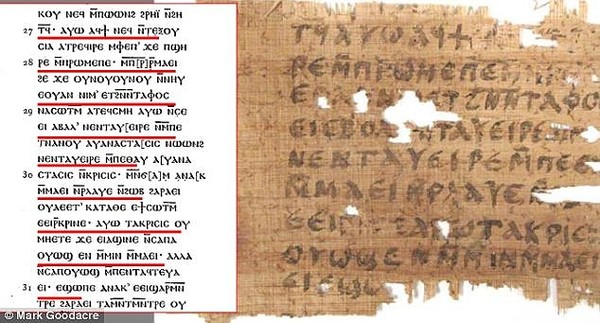 ⲕⲟⲩ ⲛⲉϥ ⲙ̅ⲡⲱⲱⲛϩ ϩⲣⲏⲓ̈ ⲛ̅ϩⲏ
27 ⲧϥ̅· ⲁⲩⲱ ⲁϥϯ ⲛⲉϥ ⲛ̅ⲧⲉⲝⲟⲩ
ⲥⲓⲁ ⲁⲧⲣⲉϥⲣⲉ ⲙⲫⲉⲡ' ϫⲉ ⲡϣⲏ
28 ⲣⲉ ⲙ̅ⲡⲣⲱⲙⲉⲡⲉ· ⲙ̅ⲡ[ⲣ̅]ⲣ̅ⲙⲁⲉⲓ
ϩⲉ ϫⲉ ⲟⲩⲛⲟⲩⲟⲩⲛⲟⲩ ⲛ̅ⲛⲏⲩ
ⲉⲟⲩⲁⲛ ⲛⲓⲙ' ⲉⲧϩⲛ̅ⲛ̅ⲧⲁⲫⲟⲥ
29 ⲛⲁⲥⲱⲧⲙ̅ ⲁⲧⲉϥⲥⲙⲏ ⲁⲩⲱ ⲛ̅ⲥⲉ
ⲉⲓ ⲁⲃⲁⲗ' ⲛⲉⲛⲧⲁⲩ[ⲉⲓⲣⲉ ⲛ̅ⲙ̅ⲡⲉ
ⲧⲛⲁⲛⲟⲩ ⲁⲩⲁⲛⲁⲥⲧⲁ[ⲥⲓⲥ ⲛⲱⲛϩ
ⲛⲉⲛⲧⲁⲩⲉⲓⲣⲉ ⲙ̅ⲡⲉⲑⲁⲩ ⲁ[ⲩⲁⲛⲁ
30 ⲥⲧⲁⲥⲓⲥ ⲛ̅ⲕⲣⲓⲥⲓⲥ· ⲙⲛ̅ϭ[ⲁ]ⲙ ⲁⲛⲁ[ⲕ
ⲙ̅ⲙⲁⲉⲓ ⲛ̅ⲣ̅ⲗⲁⲩⲉ ⲛ̅ϩⲱⲃ ϩⲁⲣⲁⲉⲓ
ⲟⲩⲁⲉⲉⲧ' ⲕⲁⲧⲁⲑⲉ ⲉϯⲥⲱⲧⲙ̅
ⲉⲉⲓⲣ̅ⲕⲣⲓⲛⲉ· ⲁⲩⲱ ⲧⲁⲕⲣⲓⲥⲓⲥ ⲟⲩ
ⲙⲏⲉⲧⲉ ϫⲉ ⲉⲓϣⲓⲛⲉ ⲛ̅ⲥⲁⲡⲁ
ⲟⲩⲱϣ ⲉⲛ ⲙ̅ⲙⲓⲛ ⲙ̅ⲙⲁⲉⲓ· ⲁⲗⲗⲁ
ⲛ̅ⲥⲁⲡⲟⲩⲱϣ ⲙ̅ⲡⲉⲛⲧⲁϥⲧⲉⲩⲁ
31 ⲉⲓ· ⲉϣⲱⲡⲉ ⲁⲛⲁⲕ' ⲉⲉⲓϣⲁⲣⲙⲛ̅
ⲧⲣⲉ ϩⲁⲣⲁⲉⲓ ⲧⲁⲙⲛ̅ⲧⲙⲛ̅ⲧⲣⲉ ⲟⲩ
ⲧϥ ⲁⲩⲱ ⲁϥϯ
ⲣⲉ ⲙ̅ⲡⲣⲱⲙⲉⲡⲉ
ⲧϩⲛ̅ⲛ̅ⲧⲁⲫⲟ
ⲉⲓ ⲉⲃⲟⲗ ⲛⲧⲁⲩⲉⲓⲣⲉ
ⲛⲉⲛⲧⲁⲩⲉⲓⲣⲉ ⲙ̅ⲡⲉ
ⲙ̅ⲙⲁⲉⲓ ⲛ̅ⲣ̅ⲗⲁⲩⲉ
ⲉⲉⲓ ⲱ ⲧⲁⲕⲣⲓⲥ
ⲟⲩⲱϣⲉ ⲛ ⲙ̅ⲙⲓⲛ ⲙ̅ⲙⲁⲉⲓ
ⲉⲓ ⲉϣⲱ
© Mark Goodacre